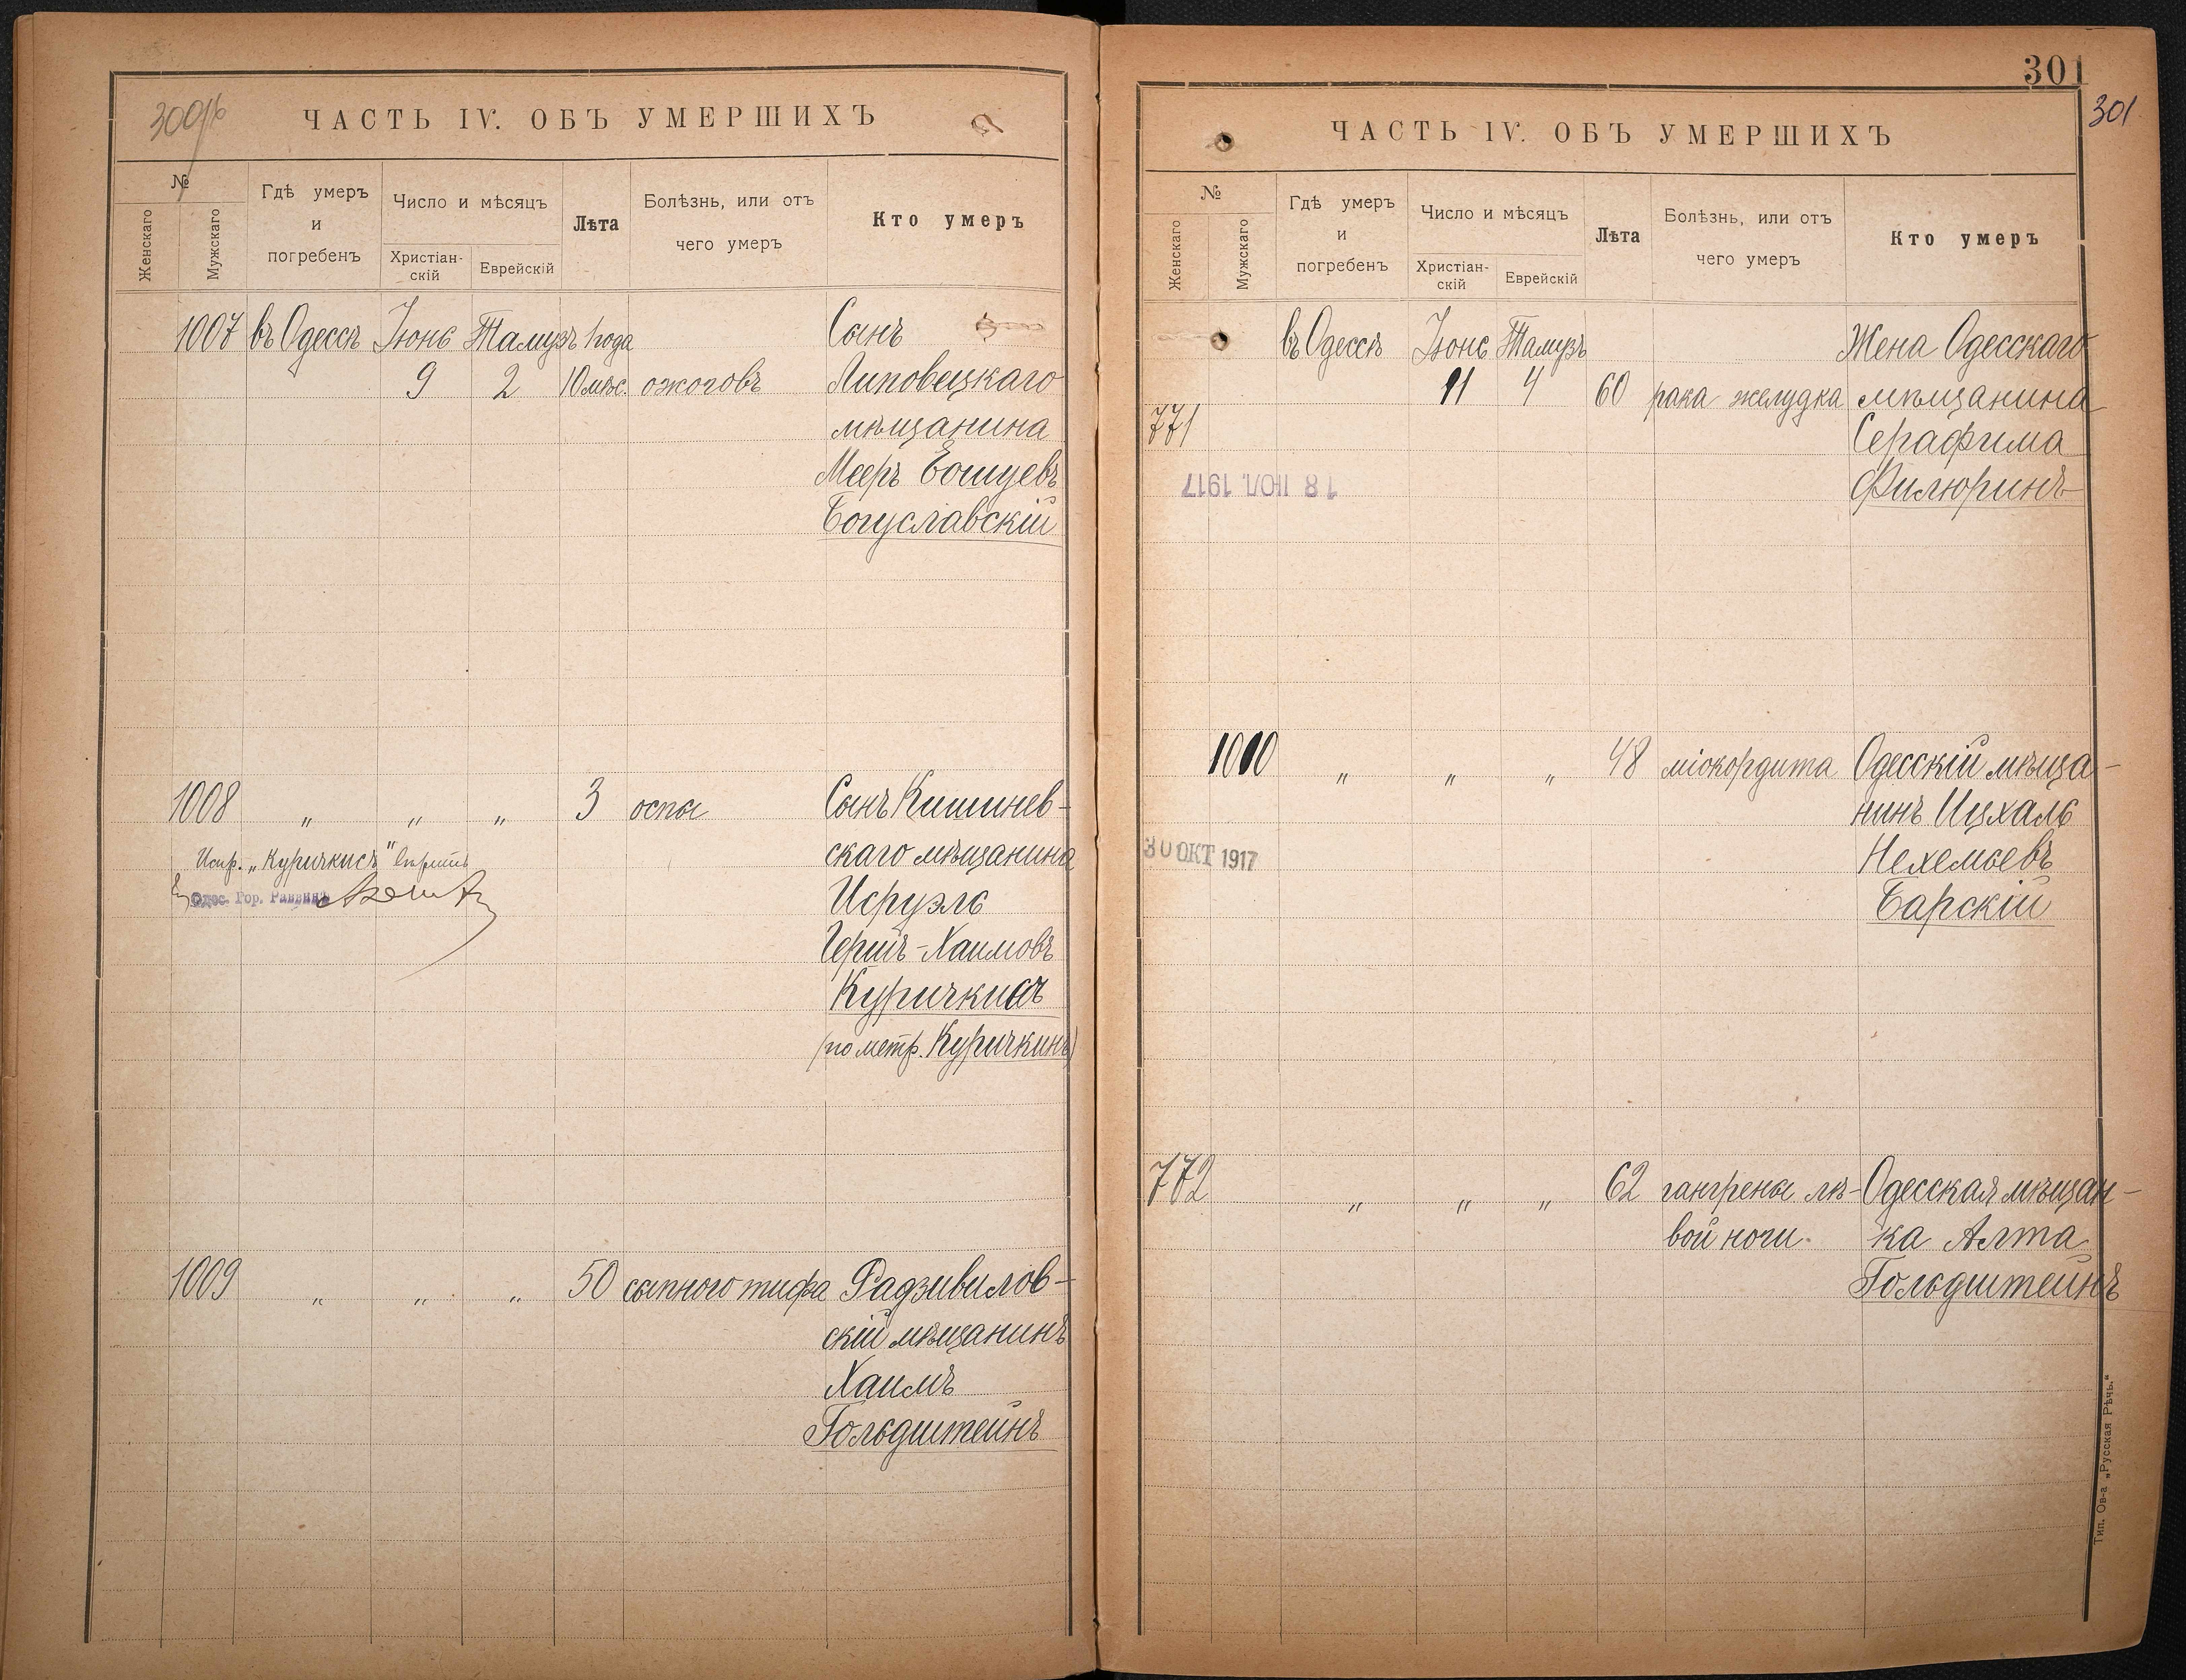 300об
ЧАСТЬ IV. ОБЪ УМЕРШИХЪ
№
Женскаго
Мужскаго
Гдѣ умеръ
и
погребенъ
Число и мѣсяцъ
Христіан-
скій
Еврейскій
Лѣта
Болѣзнь, или отъ
чего умеръ
Кто умеръ
1007 въ Одессѣ Іюнь Тамузъ 1 года Сынъ
9 2 10 мѣс. ожоговъ Липовецкаго
мѣщанина
Мееръ Іошуевъ
Богуславскій
1008 " " " 3 оспы Сынъ Кишинев-
скаго мѣщанина
Исруэль
Гершъ-Хаимовъ
Куричкисъ
(по метр. Куричкинъ)
Испр. „Куричкисъ" вѣрить
Одес. Гор. Раввинъ
1009 " " " 50 сыпного тифа Радзивилов-
скій мѣщанинъ
Хаимъ
Гольдштейнъ
301
301
ЧАСТЬ IV. ОБЪ УМЕРШИХЪ
№
Женскаго
Мужскаго
Гдѣ умеръ
и
погребенъ
Число и мѣсяцъ
Христіан-
скій
Еврейскій
Лѣта
Болѣзнь, или отъ
чего умеръ
Кто умеръ
въ Одессѣ Іюнь Тамузъ Жена Одесскаго
11 4 60 рака желудка мѣщанина
771 Серафима
Филюринъ
18 ІЮЛ. 1917
1010 " " " 48 міокордита Одесскій мѣща-
нинъ Ицхаль
Нехемьевъ
Барскій
30 ОКТ 1917
772 " " " 62 гангрены лѣ- Одесская мѣщан-
вой ноги. ка Алта
Гольдштейнъ
Тип. Ов-а „Русская Рѣчь."